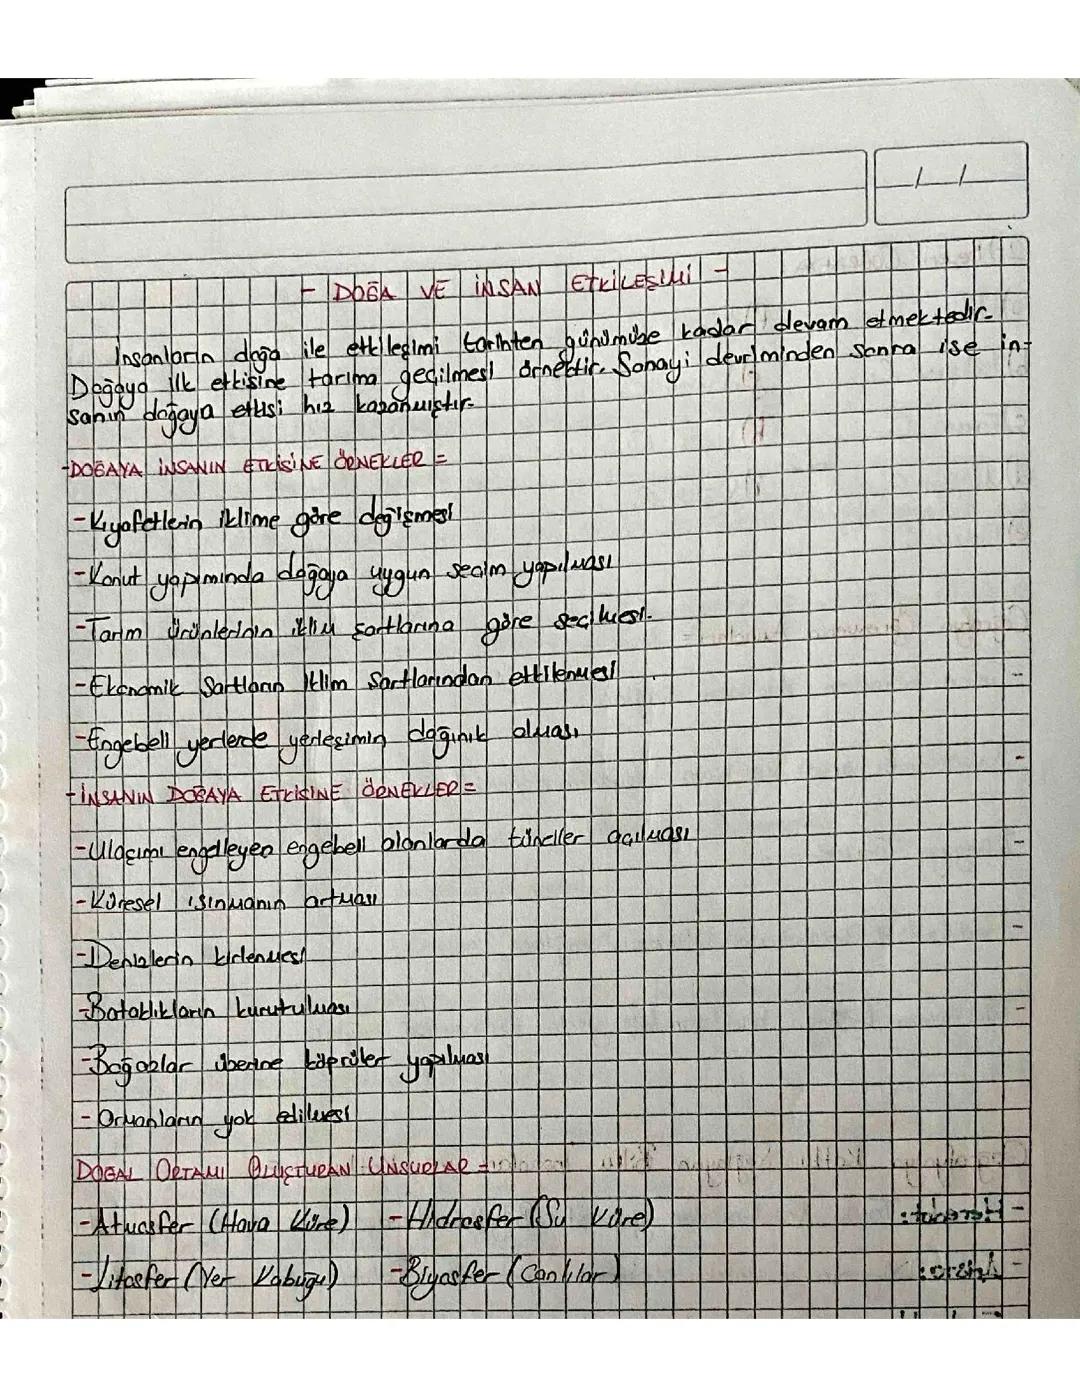 - DOĞA VE İNSAN ETKİLEŞİMİ -
İnsanların doğa ile etkileşimi tarihten günümüze kadar devam etmektedir.
Doğaya ilk etkisine tarıma geçilmesi örnektir. Sanayi devriminden sonra ise in-
sanın doğaya etkisi hız kazanmıştır.
-DOĞAYA İNSANIN ETKİSİNE ÖRNEKLER =
-Kıyafetlerin iklime göre değişmesi
-Konut yapımında doğaya uygun seçim yapılması
-Tarım ürünlerinin iklim şartlarına göre seçilmesi.
-Ekonomik Şartların İklim Şartlarından etkilenmesi
-Engebeli yerlerde yerleşimin dağınık olması
-İNSANIN DOĞAYA ETKİSİNE ÖRNEKLER=
-Ulaşımı engelleyen engebeli alanlarda tüneller açılması
-Küresel ısınmanın artması
-Denizlerin kirlenmesi
-Bataklıkların kurutulması
-Boğazlar üzerine köprüler yapılması
-Ormanların yok edilmesi
DOĞAL ORTAMI OLUŞTURAN UNSURLAR =
-Atmosfer (Hava Küre) -Hidrosfer (Su Küre)
-Litosfer (Yer Kabuğu) -Biyosfer (Canlılar)